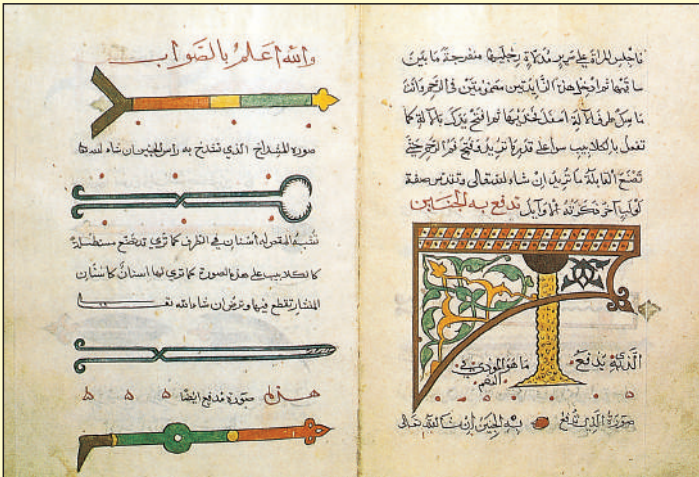 فاجلس المراة على سرير مدلاة رجليها منفرجة ما بين
ساقيها ثم ادخل هذا الزايدتين في الرحم وانت
ماسك طرف الآلة اسفل فخذيها ثم افتح يدك بالآلة كما
تفعل بالكلاليب سوا على قدر ما تريد فتح فم الرحم حتى
تصنع القابلة ما تريد ان شاء الله تعالى صفة
لولب آخر ذكرته الاوايل تدفع به الجنين
الذي يدفع ما هو
صورة الذي تدفع به الجنين ان شاء الله تعالى
والله اعلم بالصواب
صورة المشداخ الذي تشدخ به راس الجنين ان شاء الله
تشبه المقص له اسنان في الطرف كما تري قد تصنع مستطيلة
كالكلاليب على هذه الصورة كما تري لها اسنان كاسنان
المنشار تقطع فيها وترض ان شاء الله
هذه صورة مدفع ايضا ه ه ه